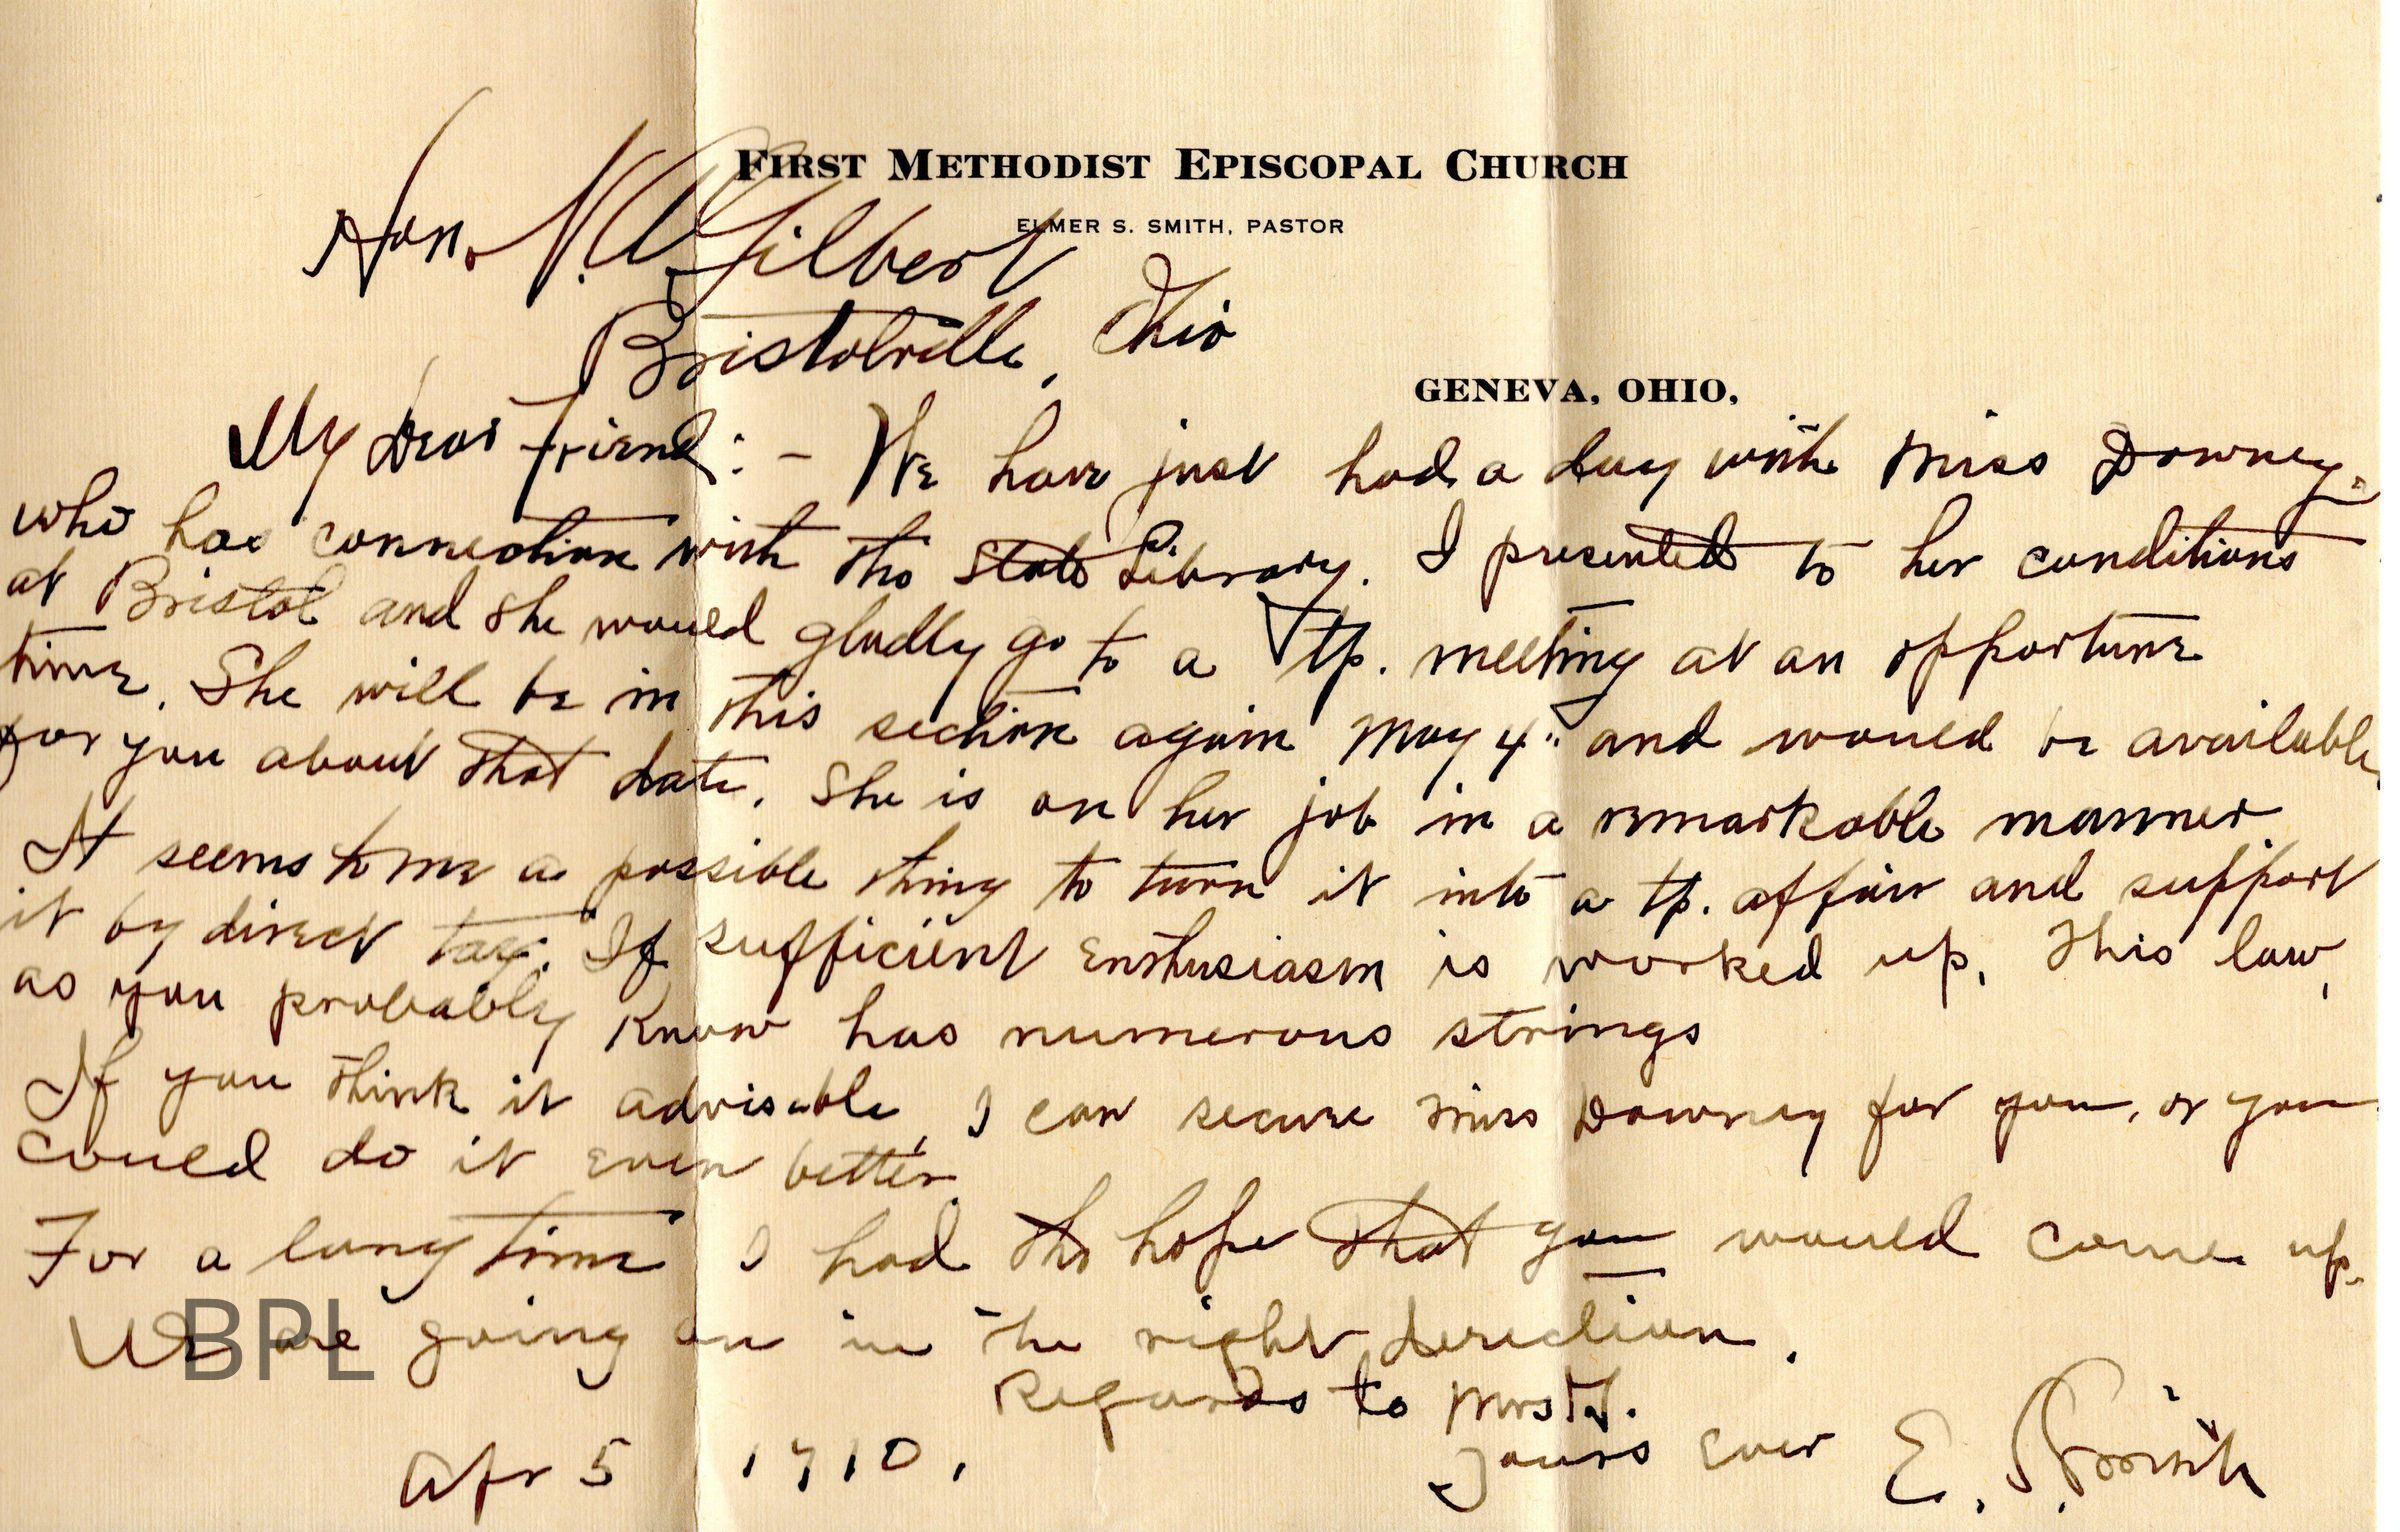 FIRST METHODIST EPISCOPAL CHURCH
ELMER S. SMITH, PASTOR
Hon. N.A. Gilbert
Bristolville, Ohio
GENEVA, OHIO,
My Dear Friend: - We have just had a day with Miss Downey.
who has connection with the State Library. I presented to her conditions
at Bristol and she would gladly go to a tp. meeting at an opportune
time. She will be in this section again May 4" and would be available
for you about that date. She is on her job in a remarkable manner.
It seems to me a possible thing to turn it into a tp. affair and support
it by direct tax. If sufficient enthusiasm is worked up. This law,
as you probably know has numerous strings
If you think it advisable, I can secure Miss Downey for you, or you
could do it even better.
For a long time I had the hope that you would come up.
We are going on in the right direction.
Regards to Mrs
Apr 5 1910.
Yours Ever E. S. Smith
BPL